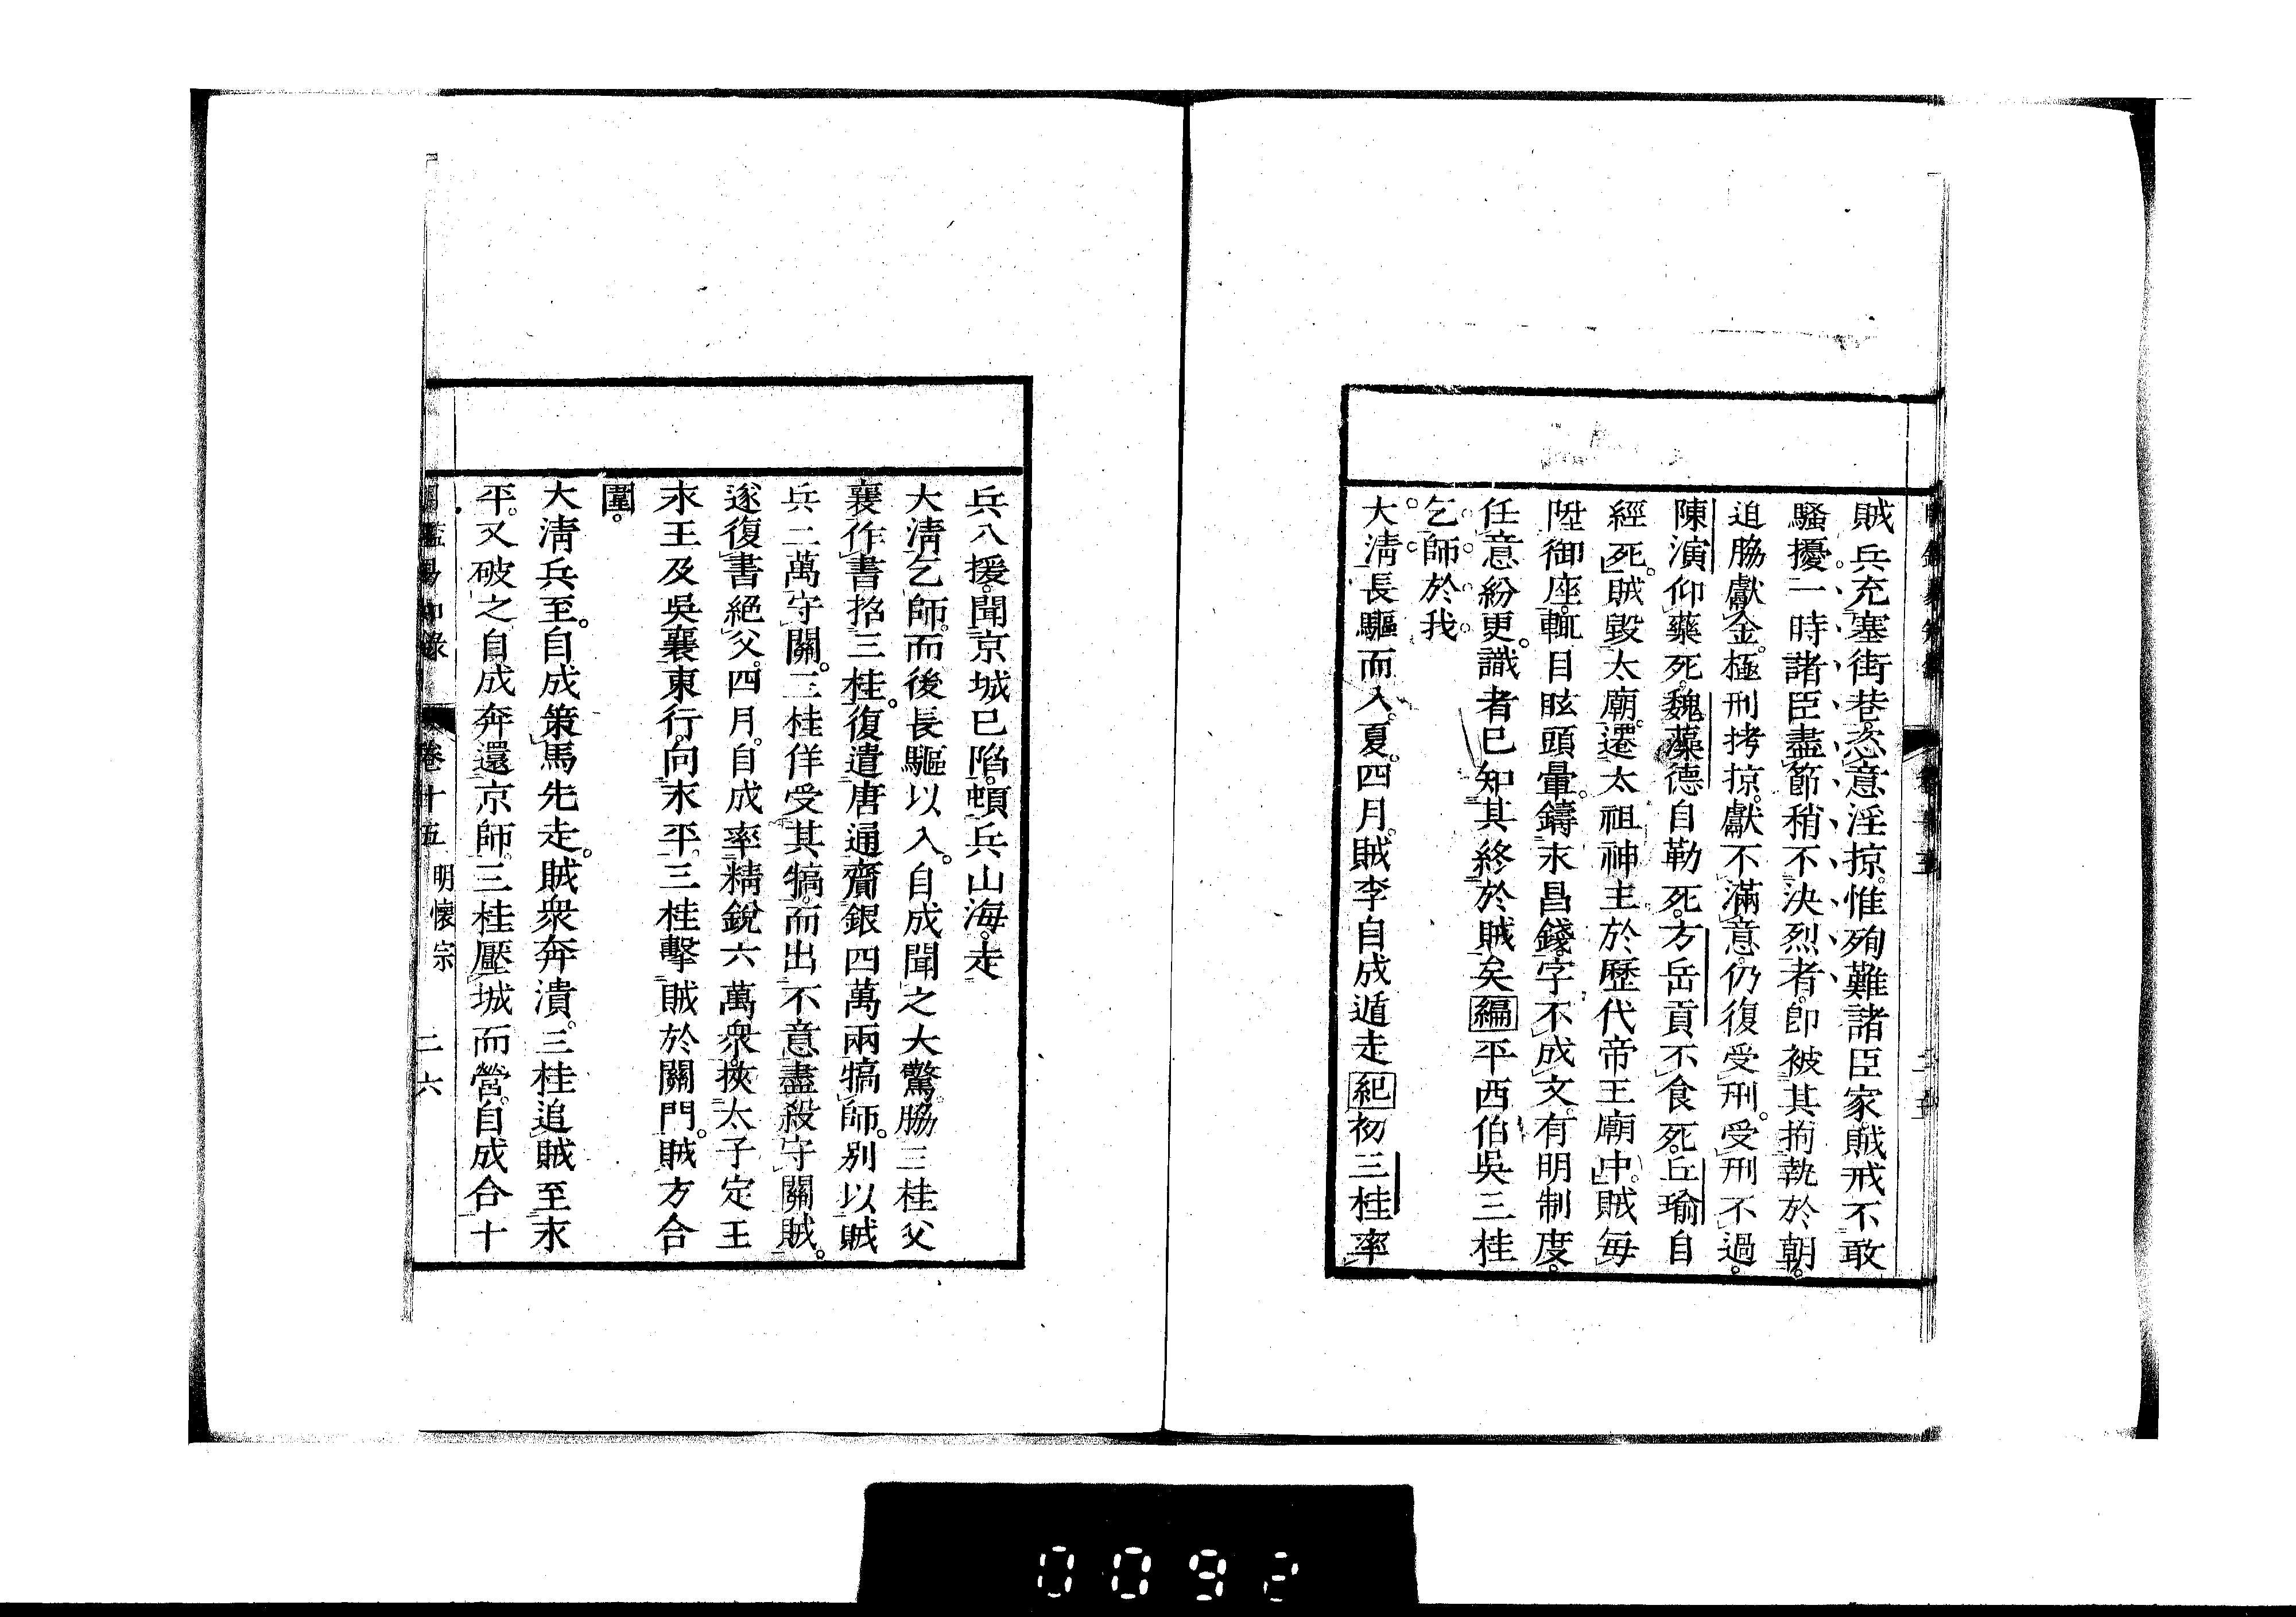 賊兵充塞街巷。恣意淫掠。惟殉難諸臣家賊戒不敢
騷擾。一時諸臣盡節稍不決烈者。卽被其拘執於朝。
迫脇獻金。極刑拷掠。獻不滿意。仍復受刑。受刑不過。
陳演仰藥死。魏藻德自勒死。方岳貢不食死。丘瑜自
經死。賊毀太廟。遷太祖神主於歷代帝王廟中。賊每
陞御座。輒目眩頭暈。鑄永昌錢。字不成文。有明制度。
任意紛更。識者已知其終於賊矣編平西伯吳三桂
乞師於我
大淸長驅而入。夏。四月。賊李自成遁走紀初三桂率
兵入援。聞京城已陷。頓兵山海。走
大淸乞師。而後長驅以入。自成聞之大驚。脇三桂父
襄作書招三桂。復遣唐通齎銀四萬兩犒師。別以賊
兵二萬守關。三桂佯受其犒。而出不意盡殺守關賊。
遂復書絕父。四月。自成率精銳六萬衆。挾太子定王
永王及吳襄東行。向永平。三桂擊賊於關門。賊方合
圍。
大淸兵至。自成策馬先走。賊衆奔潰。三桂追賊至永
平。又破之自成奔還京師。三桂壓城而營。自成合十
卷十五 明懷宗 二六
0092